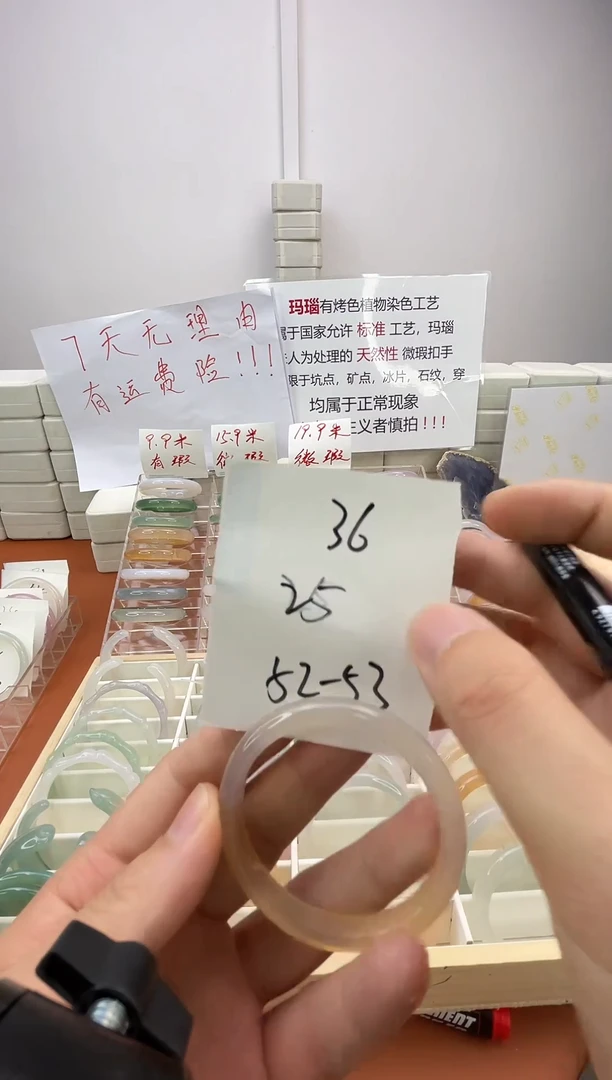 7天无理由
有运费险!!!
玛瑙有烤色植物染色工艺
属于国家允许 标准 工艺，玛瑙
人为处理的 天然性 微瑕扣手
限于坑点，矿点，冰片，石纹，穿
均属于正常现象
主义者慎拍!!!
9.9米
有瑕
15.9米
微瑕
19.9米
微瑕
36
25
52-53